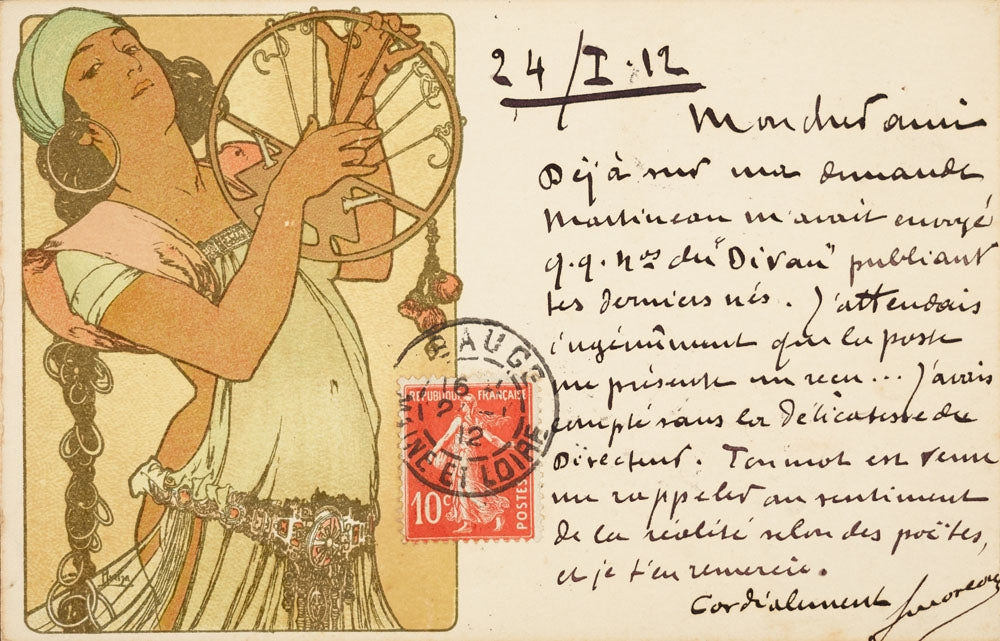 24/I.12
Mon cher ami
Déjà sur ma demande
Martineau m'avait envoyé
q.q. nos du "Divan" publiant
tes derniers nés. J'attendais
ingénûment que la poste
me présente un reçu... J'avais
compté sans la délicatesse du
Directeur. Ton mot est venu
me rappeler au sentiment
de la réalité selon des poëtes,
et je t'en remercie.
Cordialement
BAUGÉ
16
12
MAINE ET LOIRE
REPUBLIQUE FRANÇAISE
10c
POSTES
Mucha